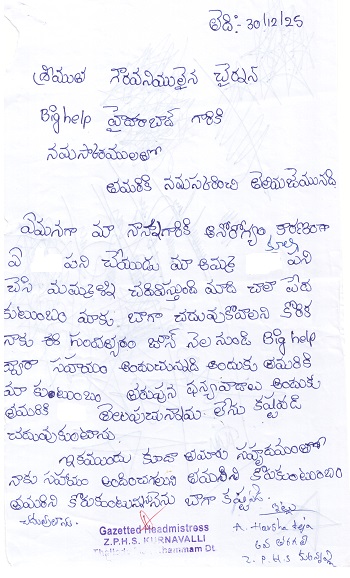 తేది:- 30/12/25
శ్రీయుత గౌరవనీయులైన ఛైర్మన్
Big help హైదరాబాద్ గారికి
నమస్కారములతో
తమరికి నమస్కరించి తెలియజేయునది
ఏమనగా మా నాన్నగారికి అనారోగ్యం కారణంగా
ఏ పని చేయడు మా అమ్మ కూలి పని
చేసి మమ్మల్ని చదివిస్తుంది మాది చాలా పేద
కుటుంబం మాకు బాగా చదువుకోవాలని కోరిక
నాకు ఈ సంవత్సరం జూన్ నెల నుండి Big help
ద్వారా సహాయం అందుచున్నది అందుకు తమరికి
మా కుటుంబం తరుపున ధన్యవాదాలు అందుకు
తమరికి తెలుపుచున్నాము నేను కష్టపడి
చదువుకుంటాను.
ఇకముందు కూడా తమరు సహృదయంతో
నాకు సహాయం అందించగలరని తమరిని కోరుకుంటున్నాం
తమరిని కోరుకుంటున్నాను బాగా
చదువుతాను.
ఇట్లు
A. Harsha Teja
10వ తరగతి
Z. P. H. S
Gazetted Headmistress
Z.P.H.S. KURNAVALLI